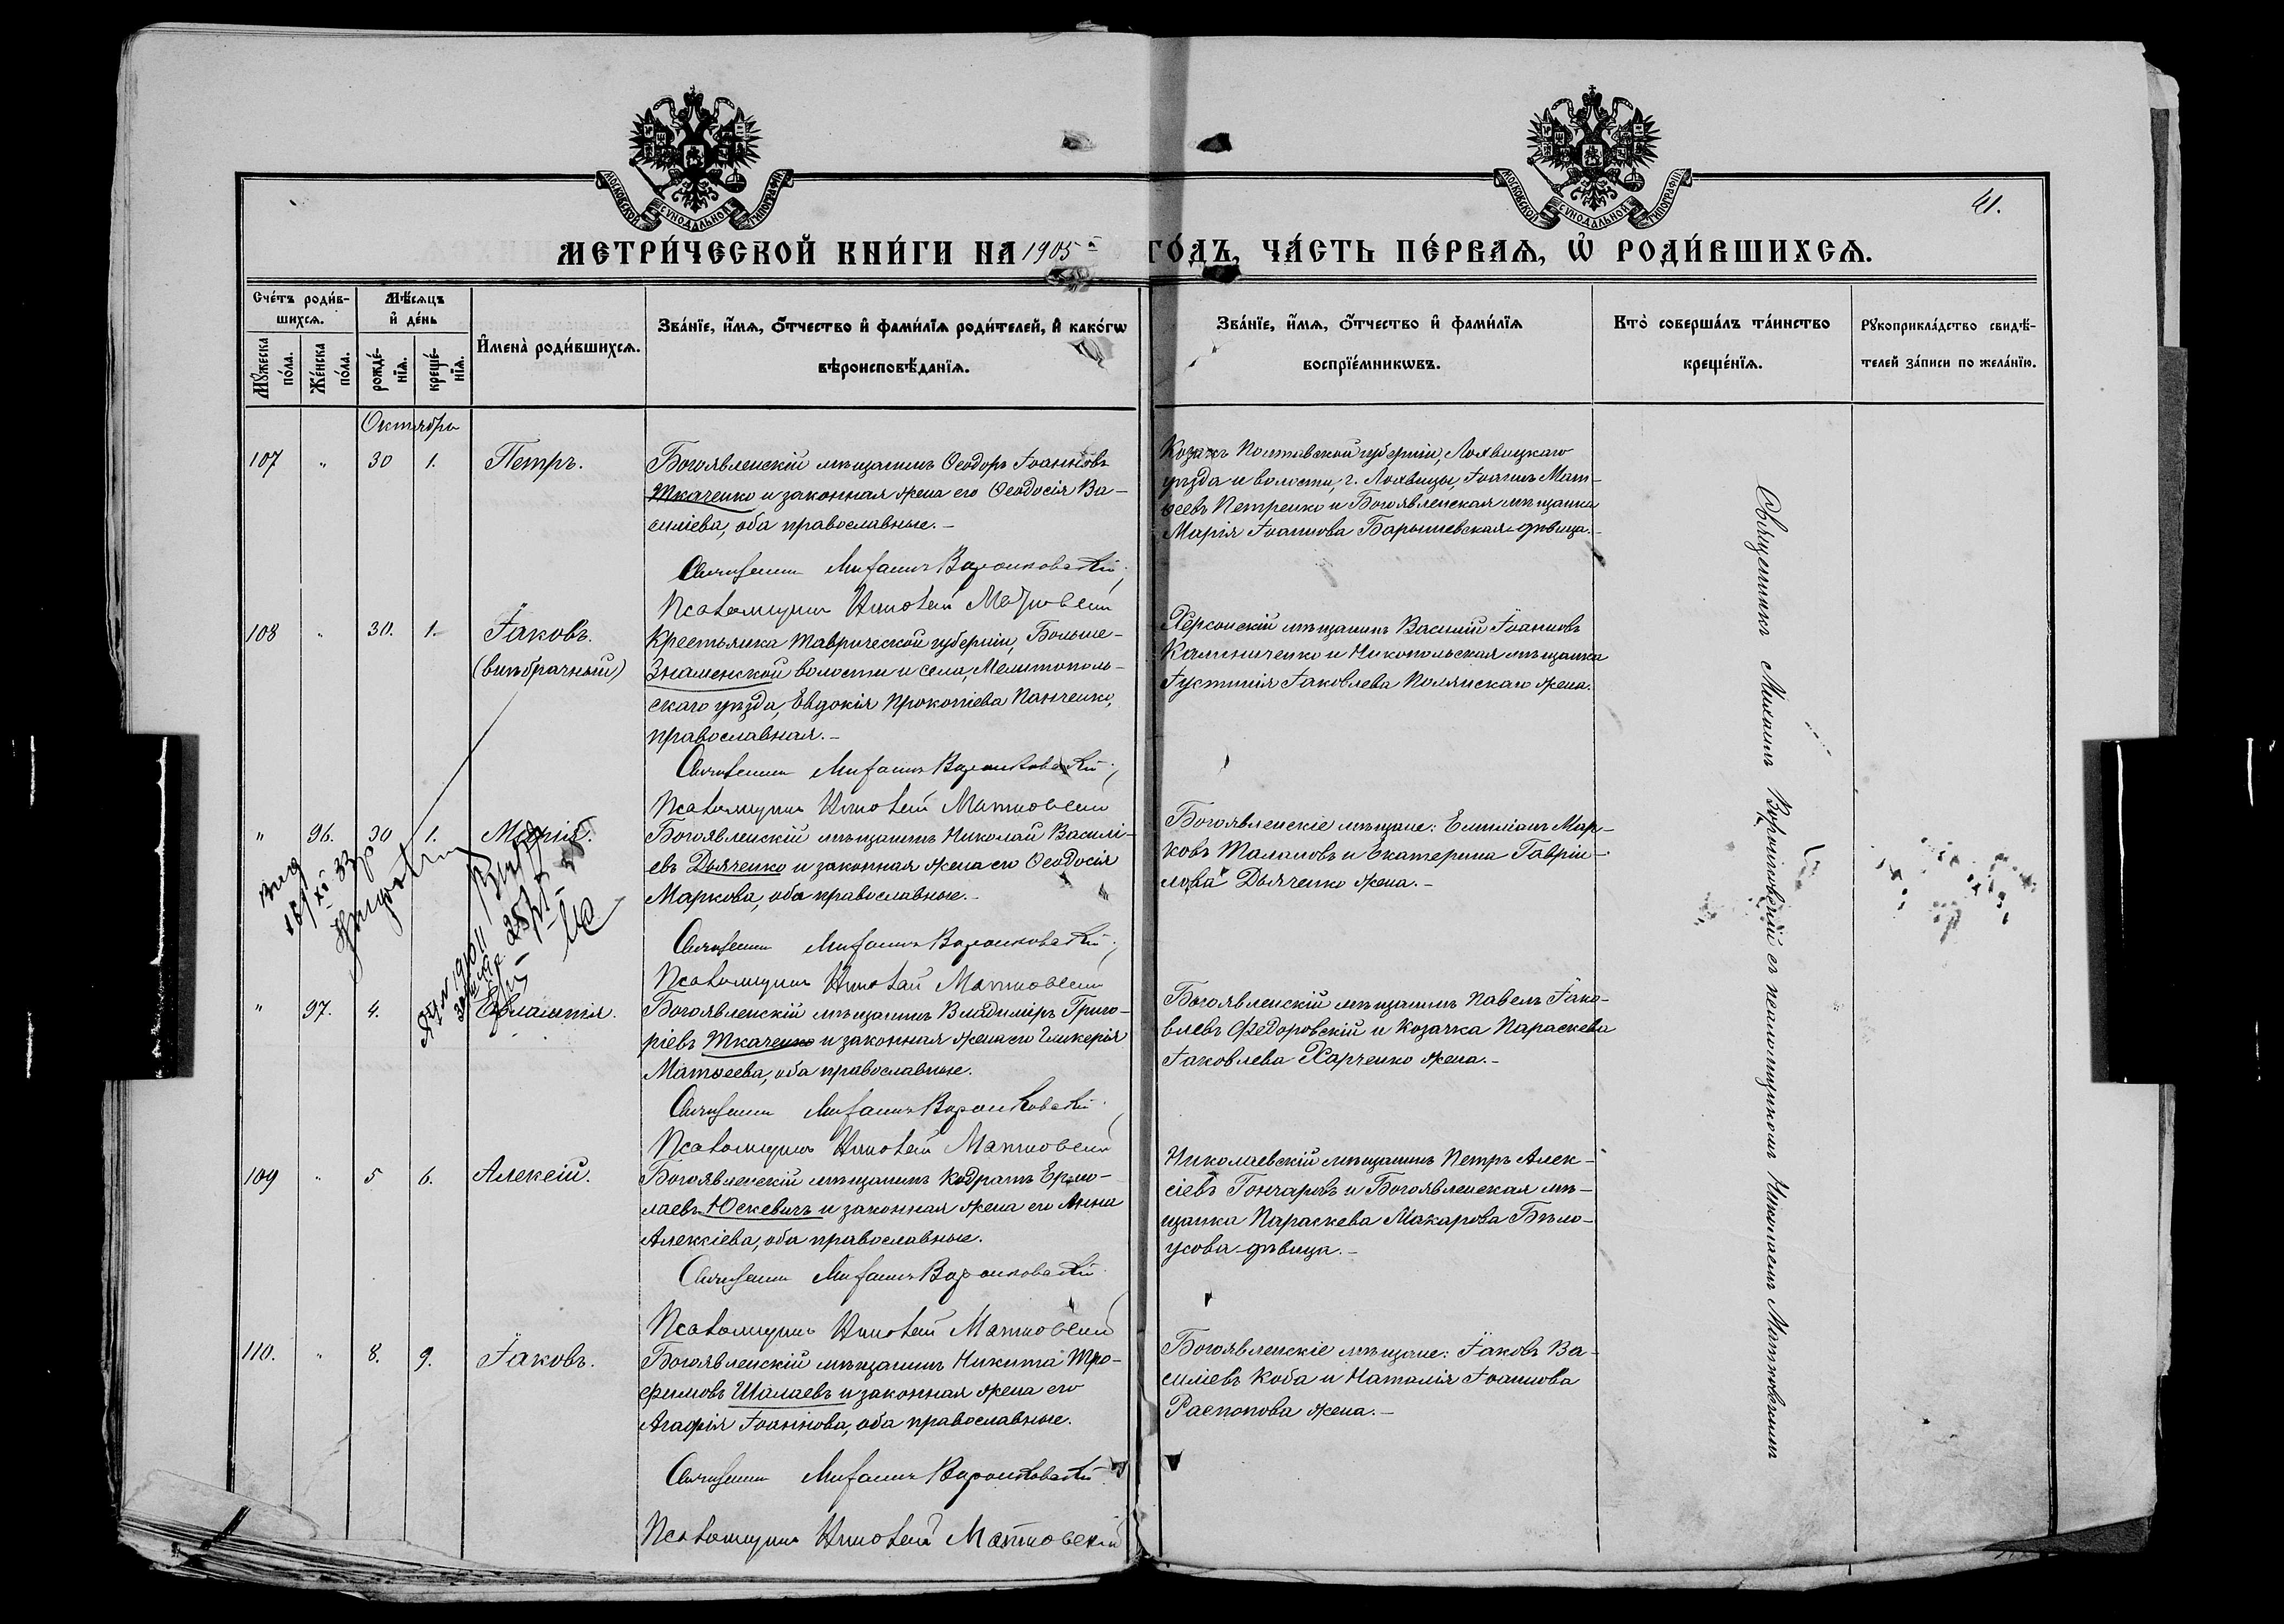 МОСКОВСКОЙ СѴНОДАЛЬНОЙ ТИПОГРАФІИ
МОСКОВСКОЙ СѴНОДАЛЬНОЙ ТИПОГРАФІИ
41.
МЕТРИ́ЧЕСКОЙ КНИ́ГИ НА 1905 й ГО́ДЪ, ЧА́СТЬ ПЕ́РВАѦ, Ѡ РОДИ́ВШИХСѦ.
Счéтъ роди́в-
шихсѧ.
Мꙋ́жеска по́ла.
Же́нска по́ла.
Мѣ́сѧцъ
и҆ де́нь
рожде́-
нїѧ.
креще́-
нїѧ.
И҆мена̀ роди́вшихсѧ.
Зва́нїе, и҆́мѧ, ѻ҆́тчество и҆ фами́лїѧ роди́телей, и҆ како́гѡ
вѣроисповѣ́данїѧ.
Зва́нїе, и҆́мѧ, ѻ҆́тчество и҆ фами́лїѧ
воспрїе́мникѡвъ.
Кто̀ соверша́лъ та́инство
креще́нїѧ.
Рꙋкоприкла́дство свидѣ́-
телей за́писи по жела́нїю.
Октября
107 " 30 1. Петръ.
Богоявленскій мѣщанинъ Ѳеодоръ Іоанновъ
Ткаченко и законная жена его Ѳеодосія Ва-
силіева, оба православные.-
Священникъ Михаилъ Воронковскій;
Псаломщикъ Николай Матковскій
Козакъ Полтавской губерніи, Лохвицкаго
уѣзда и волости, г. Лохвицы, Іоаннъ Мат-
ѳеевъ Петренко и Богоявленская мѣщанка
Марія Іоаннова Барышевская дѣвица.-
108 " 30. 1. Іаковъ.
(внѣбрачный)
Крестьянка Таврической губерніи, Больше-
Знаменской волости и села, Мелитополь-
скаго уѣзда, Евдокія Прокопіева Панченко,
православная.-
Священникъ Михаилъ Воронковскій;
Псаломщикъ Николай Матковскій
Херсонскій мѣщанинъ Василій Іоанновъ
Калиниченко и Никопольская мѣщанка
Іустинія Іаковлева Полянскаго жена.
" 96. 30 1. Марія.
Богоявленскій мѣщанинъ Николай Василі-
евъ Дьяченко и законная жена его Ѳеодосія
Маркова, оба православные.-
Священникъ Михаилъ Воронковскій;
Псаломщикъ Николай Матковскій
Богоявленскіе мѣщане: Емиліанъ Мар-
ковъ Таламовъ и Екатерина Гаврії-
лова Дьяченко жена.-
" 97. 4. Евлампія.
Богоявленскій мѣщанинъ Владиміръ Григо-
ріевъ Ткаченко и законная жена его Гликерія
Матѳеева, оба православные.
Священникъ Михаилъ Воронковскій;
Псаломщикъ Николай Матковскій
Богоявленскій мѣщанинъ Павелъ Іако-
влевъ Федоровскій и козачка Параскева
Іаковлева Харченко жена.-
109 " 5 6. Алексій.
Богоявленскій мѣщанинъ Кодратъ Ермо-
лаевъ Юскевичъ и законная жена его Анна
Алексіева, оба православные.
Священникъ Михаилъ Воронковскій
Псаломщикъ Николай Матковскій
Николаевскій мѣщанинъ Петръ Алек-
сіевъ Гончаровъ и Богоявленская мѣ-
щанка Параскева Макарова Бѣло-
усова дѣвица.-
110. " 8. 9. Іаковъ.
Богоявленскій мѣщанинъ Никита Тро-
фимовъ Шалаевъ и законная жена его
Агафія Іоаннова, оба православные.
Священникъ Михаилъ Воронковскій
Псаломщикъ Николай Матковскій
Богоявленскіе мѣщане: Іаковъ Ва-
силіевъ Коба и Наталія Іоаннова
Распопова жена.-
Священникъ Михаилъ Воронковскій съ псаломщикомъ Николаемъ Матковскимъ